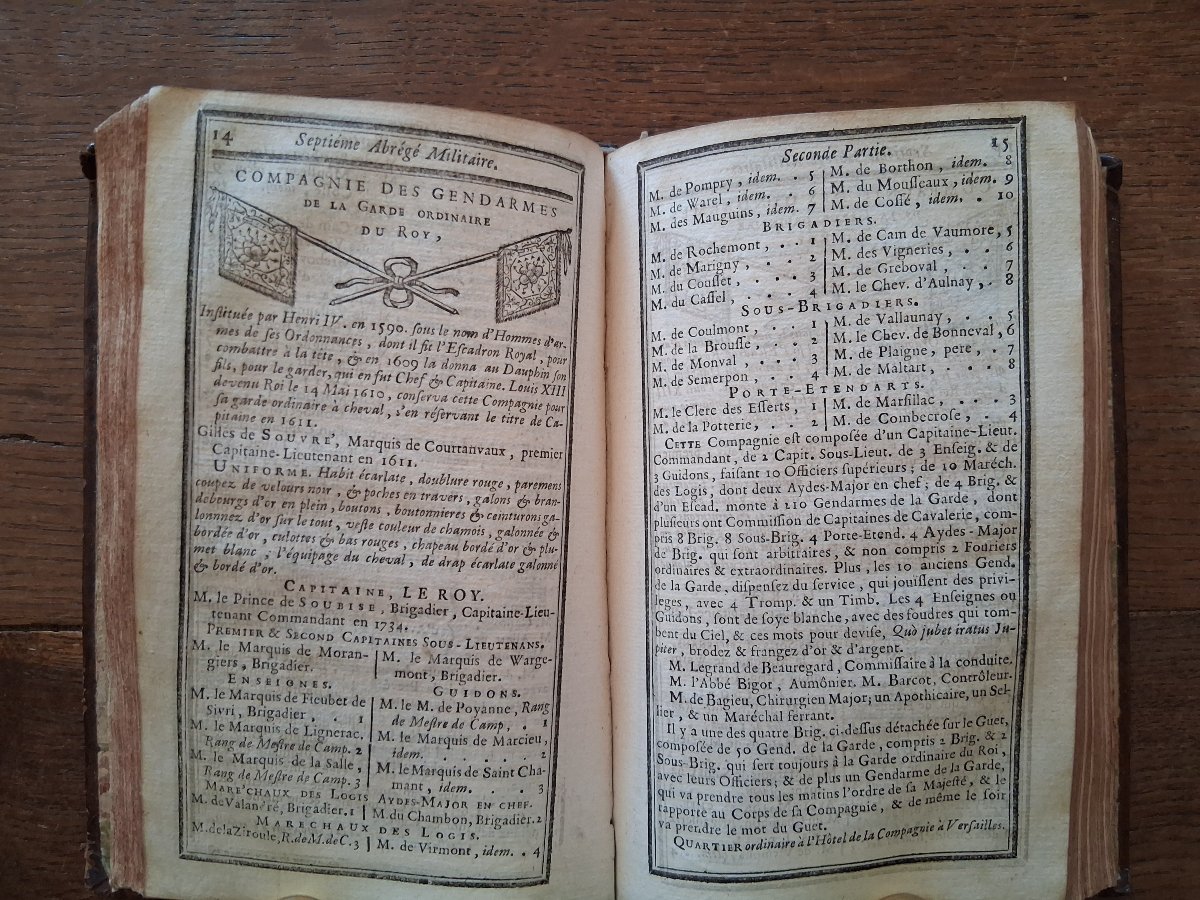 14
Septiéme Abrégé Militaire.
COMPAGNIE DES GENDARMES
DE LA GARDE ORDINAIRE
DU ROY,
Instituée par Henri IV. en 1590. sous le nom d'Hommes d'ar-
mes de ses Ordonnances, dont il fit l'Escadron Royal, pour
combattre à la tête, & en 1609 la donna au Dauphin son
fils, pour le garder, qui en fut Chef & Capitaine. Louis XIII
devenu Roi le 14 Mai 1610, conserva cette Compagnie pour
sa garde ordinaire à cheval, s'en réservant le titre de Ca-
pitaine en 1611.
Gilles de SOUVRE', Marquis de Courtanvaux, premier
Capitaine-Lieutenant en 1611.
UNIFORME. Habit écarlate, doublure rouge, paremens
coupez de velours noir, & poches en travers, galons & bran-
debourgs d'or en plein, boutons, boutonnieres & ceinturons ga-
lonnnez d'or sur le tout, veste couleur de chamois, galonnée &
bordée d'or, culottes & bas rouges, chapeau bordé d'or & plu-
met blanc, l'équipage du cheval, de drap écarlate galonné
& bordé d'or.
CAPITAINE, LE ROY.
M. le Prince de SOUBISE, Brigadier, Capitaine-Lieu-
tenant Commandant en 1734.
PREMIER & SECOND CAPITAINES SOUS-LIEUTENANS.
M. le Marquis de Moran-
giers, Brigadier.
M. le Marquis de Warge-
mont, Brigadier.
ENSEIGNES.
M. le Marquis de Fieubet de
Sivri, Brigadier, . 1
M. le Marquis de Lignerac,
Rang de Mestre de Camp. 2
M. le Marquis de la Salle,
Rang de Mestre de Camp. 3
GUIDONS.
M. le M. de Poyanne, Rang
de Mestre de Camp, . 1
M. le Marquis de Marcieu,
idem. . . . . . 2
M. le Marquis de Saint Cha-
mant, idem. . . . 3
MARE'CHAUX DES LOGIS AYDES-MAJOR EN CHEF.
M. de Valandré, Brigadier. 1 | M. du Chambon, Brigadier. 2
MARECHAUX DES LOGIS.
M. de la Ziroule, R. de M. de C. 3 | M. de Virmont, idem. . 4
Seconde Partie.
15
M. de Pompry, idem. . 5
M. de Warel, idem. . 6
M. des Mauguins, idem. 7
M. de Borthon, idem. 8
M. du Mousseaux, idem. 9
M. de Cossé, idem. . 10
BRIGADIERS.
M. de Rochemont, . . 1
M. de Marigny, . . 2
M. du Cousset, . . . 3
M. du Cassel, . . . . 4
M. de Cam de Vaumore, 5
M. des Vigneries, . . 6
M. de Greboval, . . 7
M. le Chev. d'Aulnay, . 8
SOUS-BRIGADIERS.
M. de Coulmont, . . 1
M. de la Brousse, . . 2
M. de Monval, . . 3
M. de Semerpon, . . 4
M. de Vallaunay, . . 5
M. le Chev. de Bonneval, 6
M. de Plaigne, pere, . 7
M. de Maltart, . . . 8
PORTE-ETENDARTS.
M. le Clerc des Esserts, 1
M. de la Potterie, . . 2
M. de Marsillac, . . . 3
M. de Combecrose, . . 4
CETTE Compagnie est composée d'un Capitaine-Lieut.
Commandant, de 2 Capit. Sous-Lieut. de 3 Enseig. & de
3 Guidons, faisant 10 Officiers supérieurs; de 10 Maréch.
des Logis, dont deux Aydes-Major en chef; de 4 Brig. &
d'un Escad. monte à 210 Gendarmes de la Garde, dont
plusieurs ont Commission de Capitaines de Cavalerie, com-
pris 8 Brig. 8 Sous-Brig. 4 Porte-Etend. 4 Aydes-Major
de Brig. qui sont arbitraires, & non compris 2 Fouriers
ordinaires & extraordinaires. Plus, les 10 anciens Gend.
de la Garde, dispensez du service, qui jouissent des privi-
leges, avec 4 Tromp. & un Timb. Les 4 Enseignes ou
Guidons, sont de soye blanche, avec des foudres qui tom-
bent du Ciel, & ces mots pour devise, Quò jubet iratus Ju-
piter, brodez & frangez d'or & d'argent.
M. Legrand de Beauregard, Commissaire à la conduite.
M. l'Abbé Bigot, Aumônier. M. Barcot, Contrôleur.
M. de Bagieu, Chirurgien Major; un Apothicaire, un Sel-
lier, & un Maréchal ferrant.
Il y a une des quatre Brig. ci-dessus détachée sur le Guet,
composée de 50 Gend. de la Garde, compris 2 Brig. & 2
Sous-Brig. qui sert toujours à la Garde ordinaire du Roi,
avec leurs Officiers; & de plus un Gendarme de la Garde,
qui va prendre tous les matins l'ordre de sa Majesté, & le
rapporte au Corps de sa Compagnie, & de même le soir
va prendre le mot du Guet.
QUARTIER ordinaire à l'Hôtel de la Compagnie à Versailles.